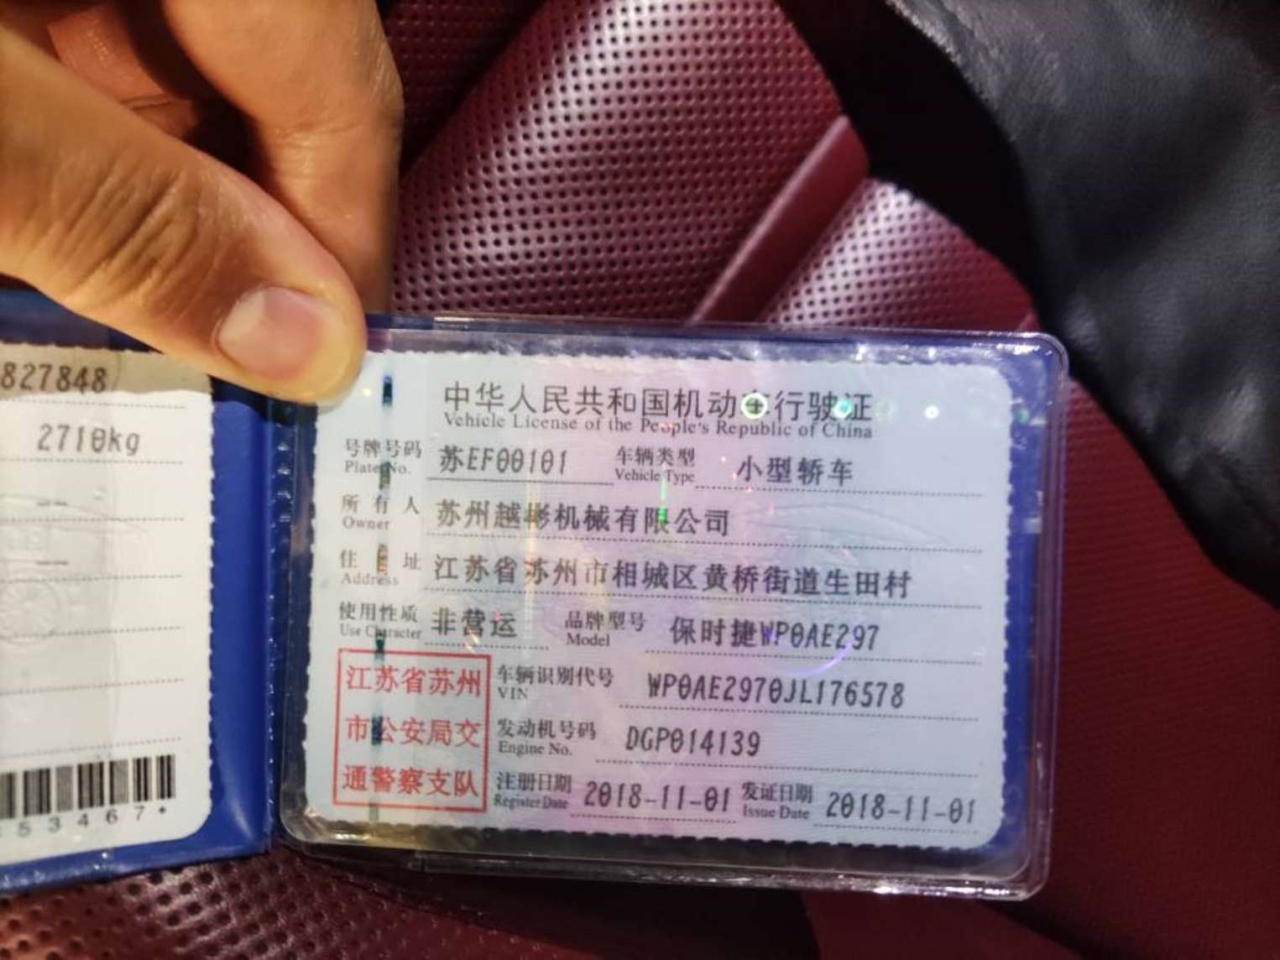 827848
2710kg
53467*
中华人民共和国机动车行驶证
Vehicle License of the People's Republic of China
号牌号码 苏EF00101 车辆类型 小型轿车
Plate No. Vehicle Type
所有人 苏州越彬机械有限公司
Owner
住址 江苏省苏州市相城区黄桥街道生田村
Address
使用性质 非营运 品牌型号 保时捷WP0AE297
Use Character Model
江苏省苏州
市公安局交
通警察支队
车辆识别代号 WP0AE2970JL176578
VIN
发动机号码 DGP014139
Engine No.
注册日期 2018-11-01 发证日期 2018-11-01
Register Date Issue Date